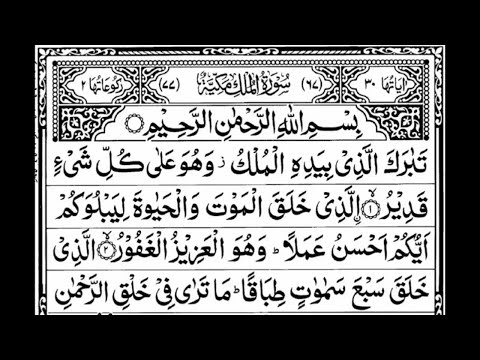 اٰیَاتُهَا ۳۰ (۶۷) سُوْرَةُ الْمُلْكِ مَكِّیَّةٌ (۷۷) رُكُوْعَاتُهَا ۲
بِسْمِ اللّٰهِ الرَّحْمٰنِ الرَّحِیْمِ
تَبٰرَكَ الَّذِیْ بِیَدِهِ الْمُلْكُ ز وَهُوَ عَلٰی كُلِّ شَیْءٍ
قَدِیْرُ ۙ﴿۱﴾ اِ۟لَّذِیْ خَلَقَ الْمَوْتَ وَالْحَیٰوةَ لِیَبْلُوَكُمْ
اَیُّكُمْ اَحْسَنُ عَمَلًا ؕ وَهُوَ الْعَزِیْزُ الْغَفُوْرُ ۙ﴿۲﴾ الَّذِیْ
خَلَقَ سَبْعَ سَمٰوٰتٍ طِبَاقًا ؕ مَا تَرٰی فِیْ خَلْقِ الرَّحْمٰنِ